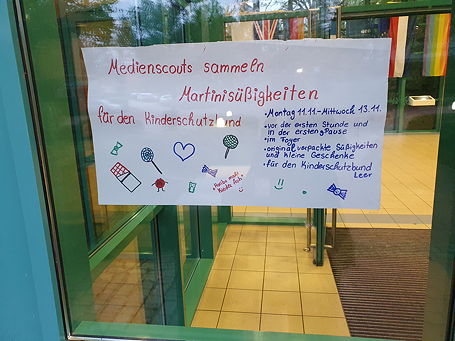 Medienscouts sammeln
Martinisüßigkeiten
für den Kinderschutzbund
• Montag 11.11. - Mittwoch 13.11.
• vor der ersten Stunde und
in der ersten Pause
• im Foyer
• original verpackte Süßigkeiten
und kleine Geschenke
• für den Kinderschutzbund
Leer